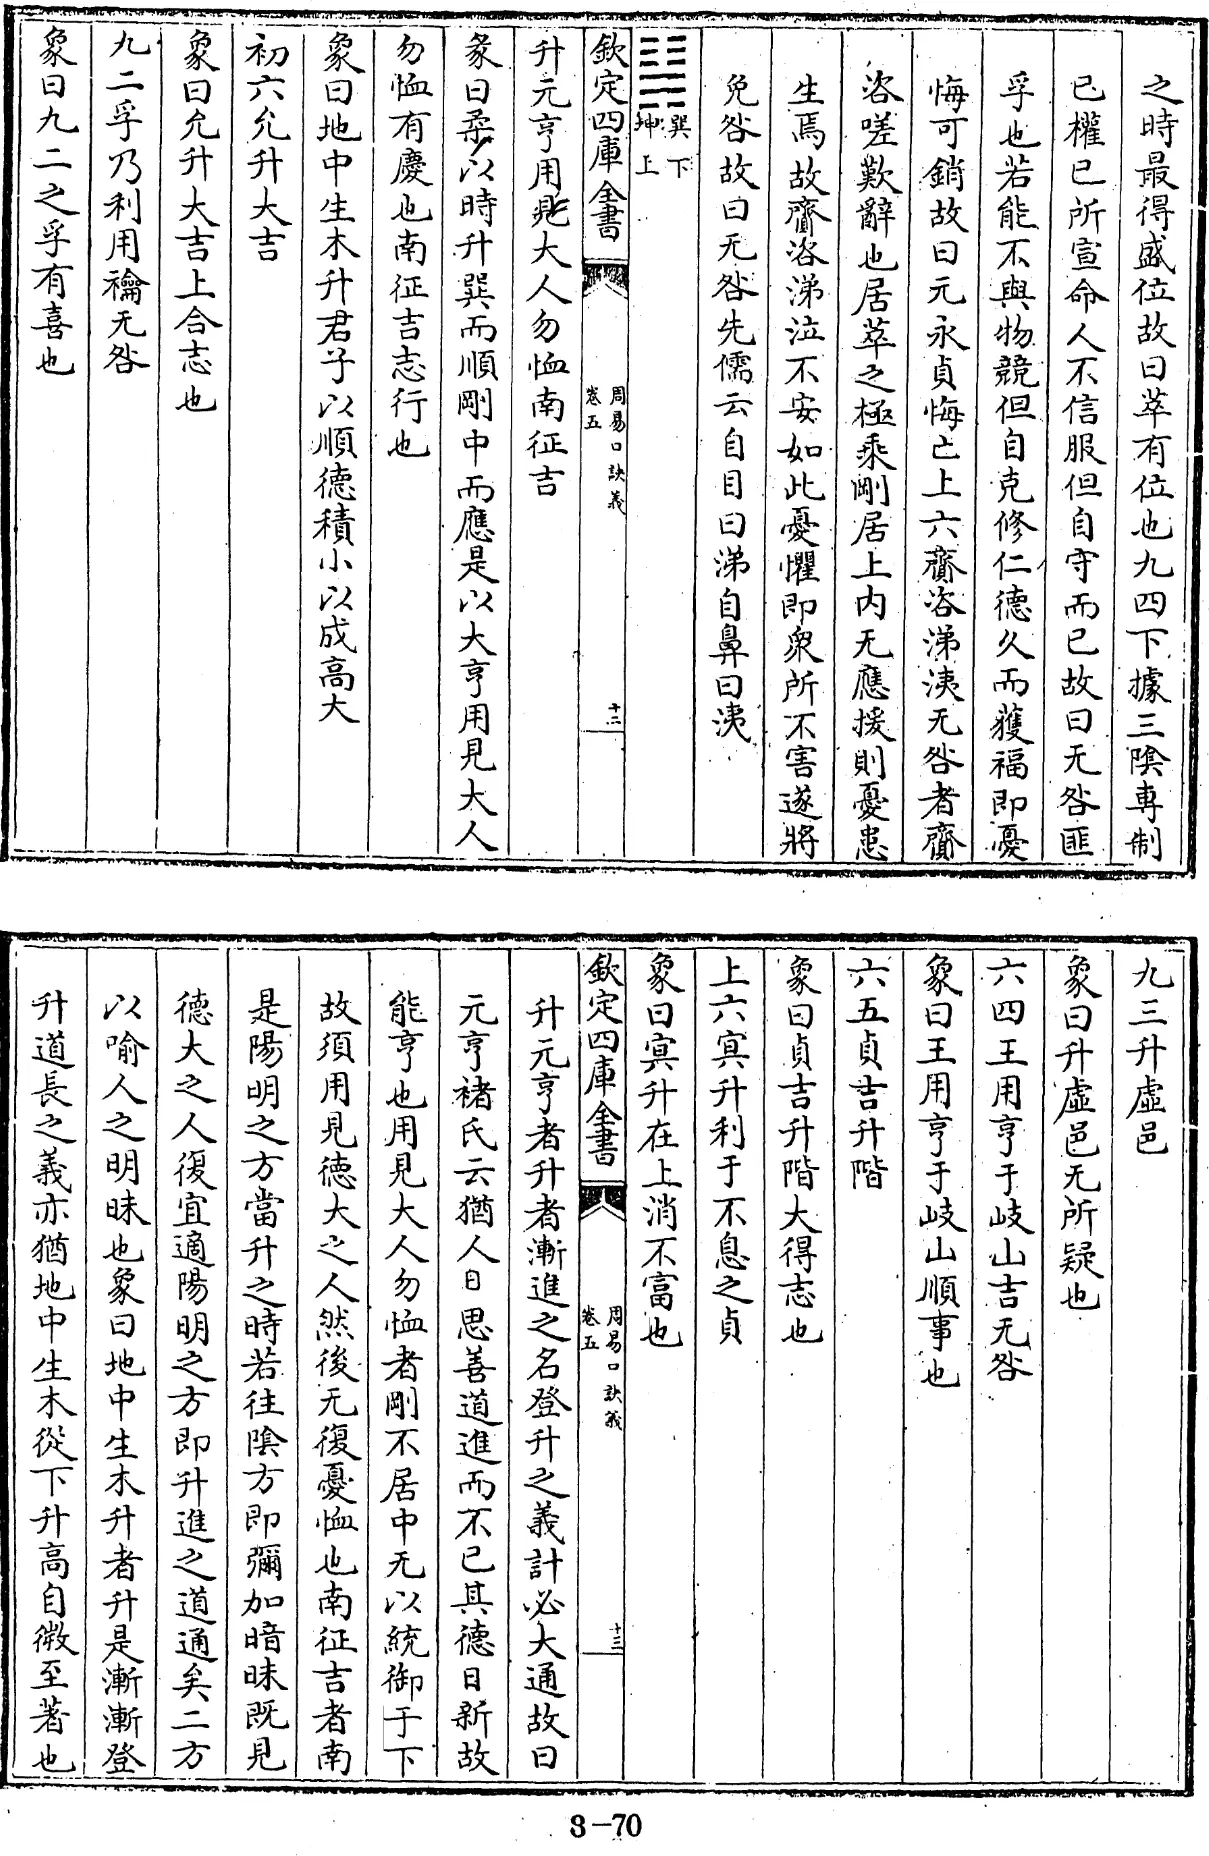 之時最得盛位故曰萃有位也九四下據三陰專制
已權已所宣命人不信服但自守而已故曰无咎匪
孚也若能不與物競但自克修仁德久而獲福即憂
悔可銷故曰元永貞悔亡上六齎咨涕洟无咎者齎
咨嗟歎辭也居萃之極乘剛居上内无應援則憂患
生焉故齎咨涕泣不安如此憂懼即衆所不害遂將
免咎故曰无咎先儒云自目曰涕自鼻曰洟
巽下
坤上
欽定四庫全書
周易口訣義
卷五
十二
升元亨用見大人勿恤南征吉
彖曰柔以時升巽而順剛中而應是以大亨用見大人
勿恤有慶也南征吉志行也
象曰地中生木升君子以順德積小以成高大
初六允升大吉
象曰允升大吉上合志也
九二孚乃利用禴无咎
象曰九二之孚有喜也
九三升虛邑
象曰升虛邑无所疑也
六四王用亨于岐山吉无咎
象曰王用亨于岐山順事也
六五貞吉升階
象曰貞吉升階大得志也
上六冥升利于不息之貞
象曰冥升在上消不富也
欽定四庫全書
周易口訣義
卷五
十三
升元亨者升者漸進之名登升之義計必大通故曰
元亨褚氏云猶人日思善道進而不已其德日新故
能亨也用見大人勿恤者剛不居中无以統御于下
故須用見德大之人然後无復憂恤也南征吉者南
是陽明之方當升之時若往陰方即彌加暗昧既見
德大之人復宜適陽明之方即升進之道通矣二方
以喻人之明昧也象曰地中生木升者升是漸漸登
升道長之義亦猶地中生木從下升高自微至著也
3-70